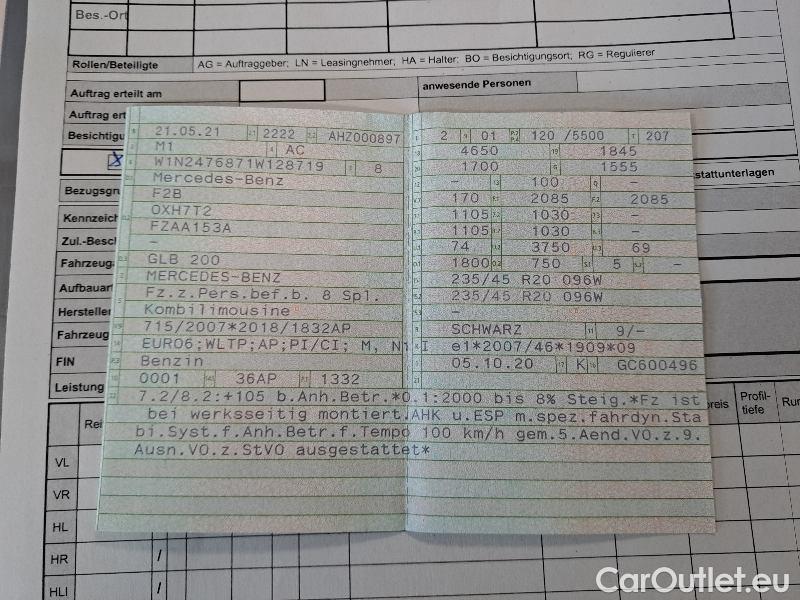 Bes.-Ort
Rollen/Beteiligte AG = Auftraggeber; LN = Leasingnehmer; HA = Halter; BO = Besichtigungsort; RG = Regulierer
Auftrag erteilt am
anwesende Personen
Auftrag ert
Besichtigu
stattunterlagen
Bezugsgr
Kennzeich
Zul.-Besch
Fahrzeuga
Aufbauart
Hersteller
Fahrzeug
FIN
Leistung
21.05.21 2222 AHZ000897
M1 AC
W1N2476871W128719 8
Mercedes-Benz
F2B
OXH7T2
FZAA153A
-
GLB 200
MERCEDES-BENZ
Fz.z.Pers.bef.b. 8 Spl.
Kombilimousine
715/2007*2018/1832AP
EURO6;WLTP;AP;PI/CI; M, N1 I
Benzin
0001 36AP 1332
2 01 120 /5500 207
4650 1845
1700 1555
- 100 -
170 2085 2085
1105 1030 -
1105 1030 -
74 3750 69
1800 750 5 -
235/45 R20 096W
235/45 R20 096W
-
SCHWARZ 9/-
e1*2007/46*1909*09
05.10.20 K GC600496
7.2/8.2:+105 b.Anh.Betr.*O.1:2000 bis 8% Steig.*Fz ist
bei werksseitig montiert.AHK u.ESP m.spez.fahrdyn.Sta
bi.Syst.f.Anh.Betr.f.Tempo 100 km/h gem.5.Aend.VO.z.9.
Ausn.VO.z.StVO ausgestattet*
Rei
preis Profil-
tiefe
Run
VL
VR
HL
HR /
HLI /
CarOutlet.eu